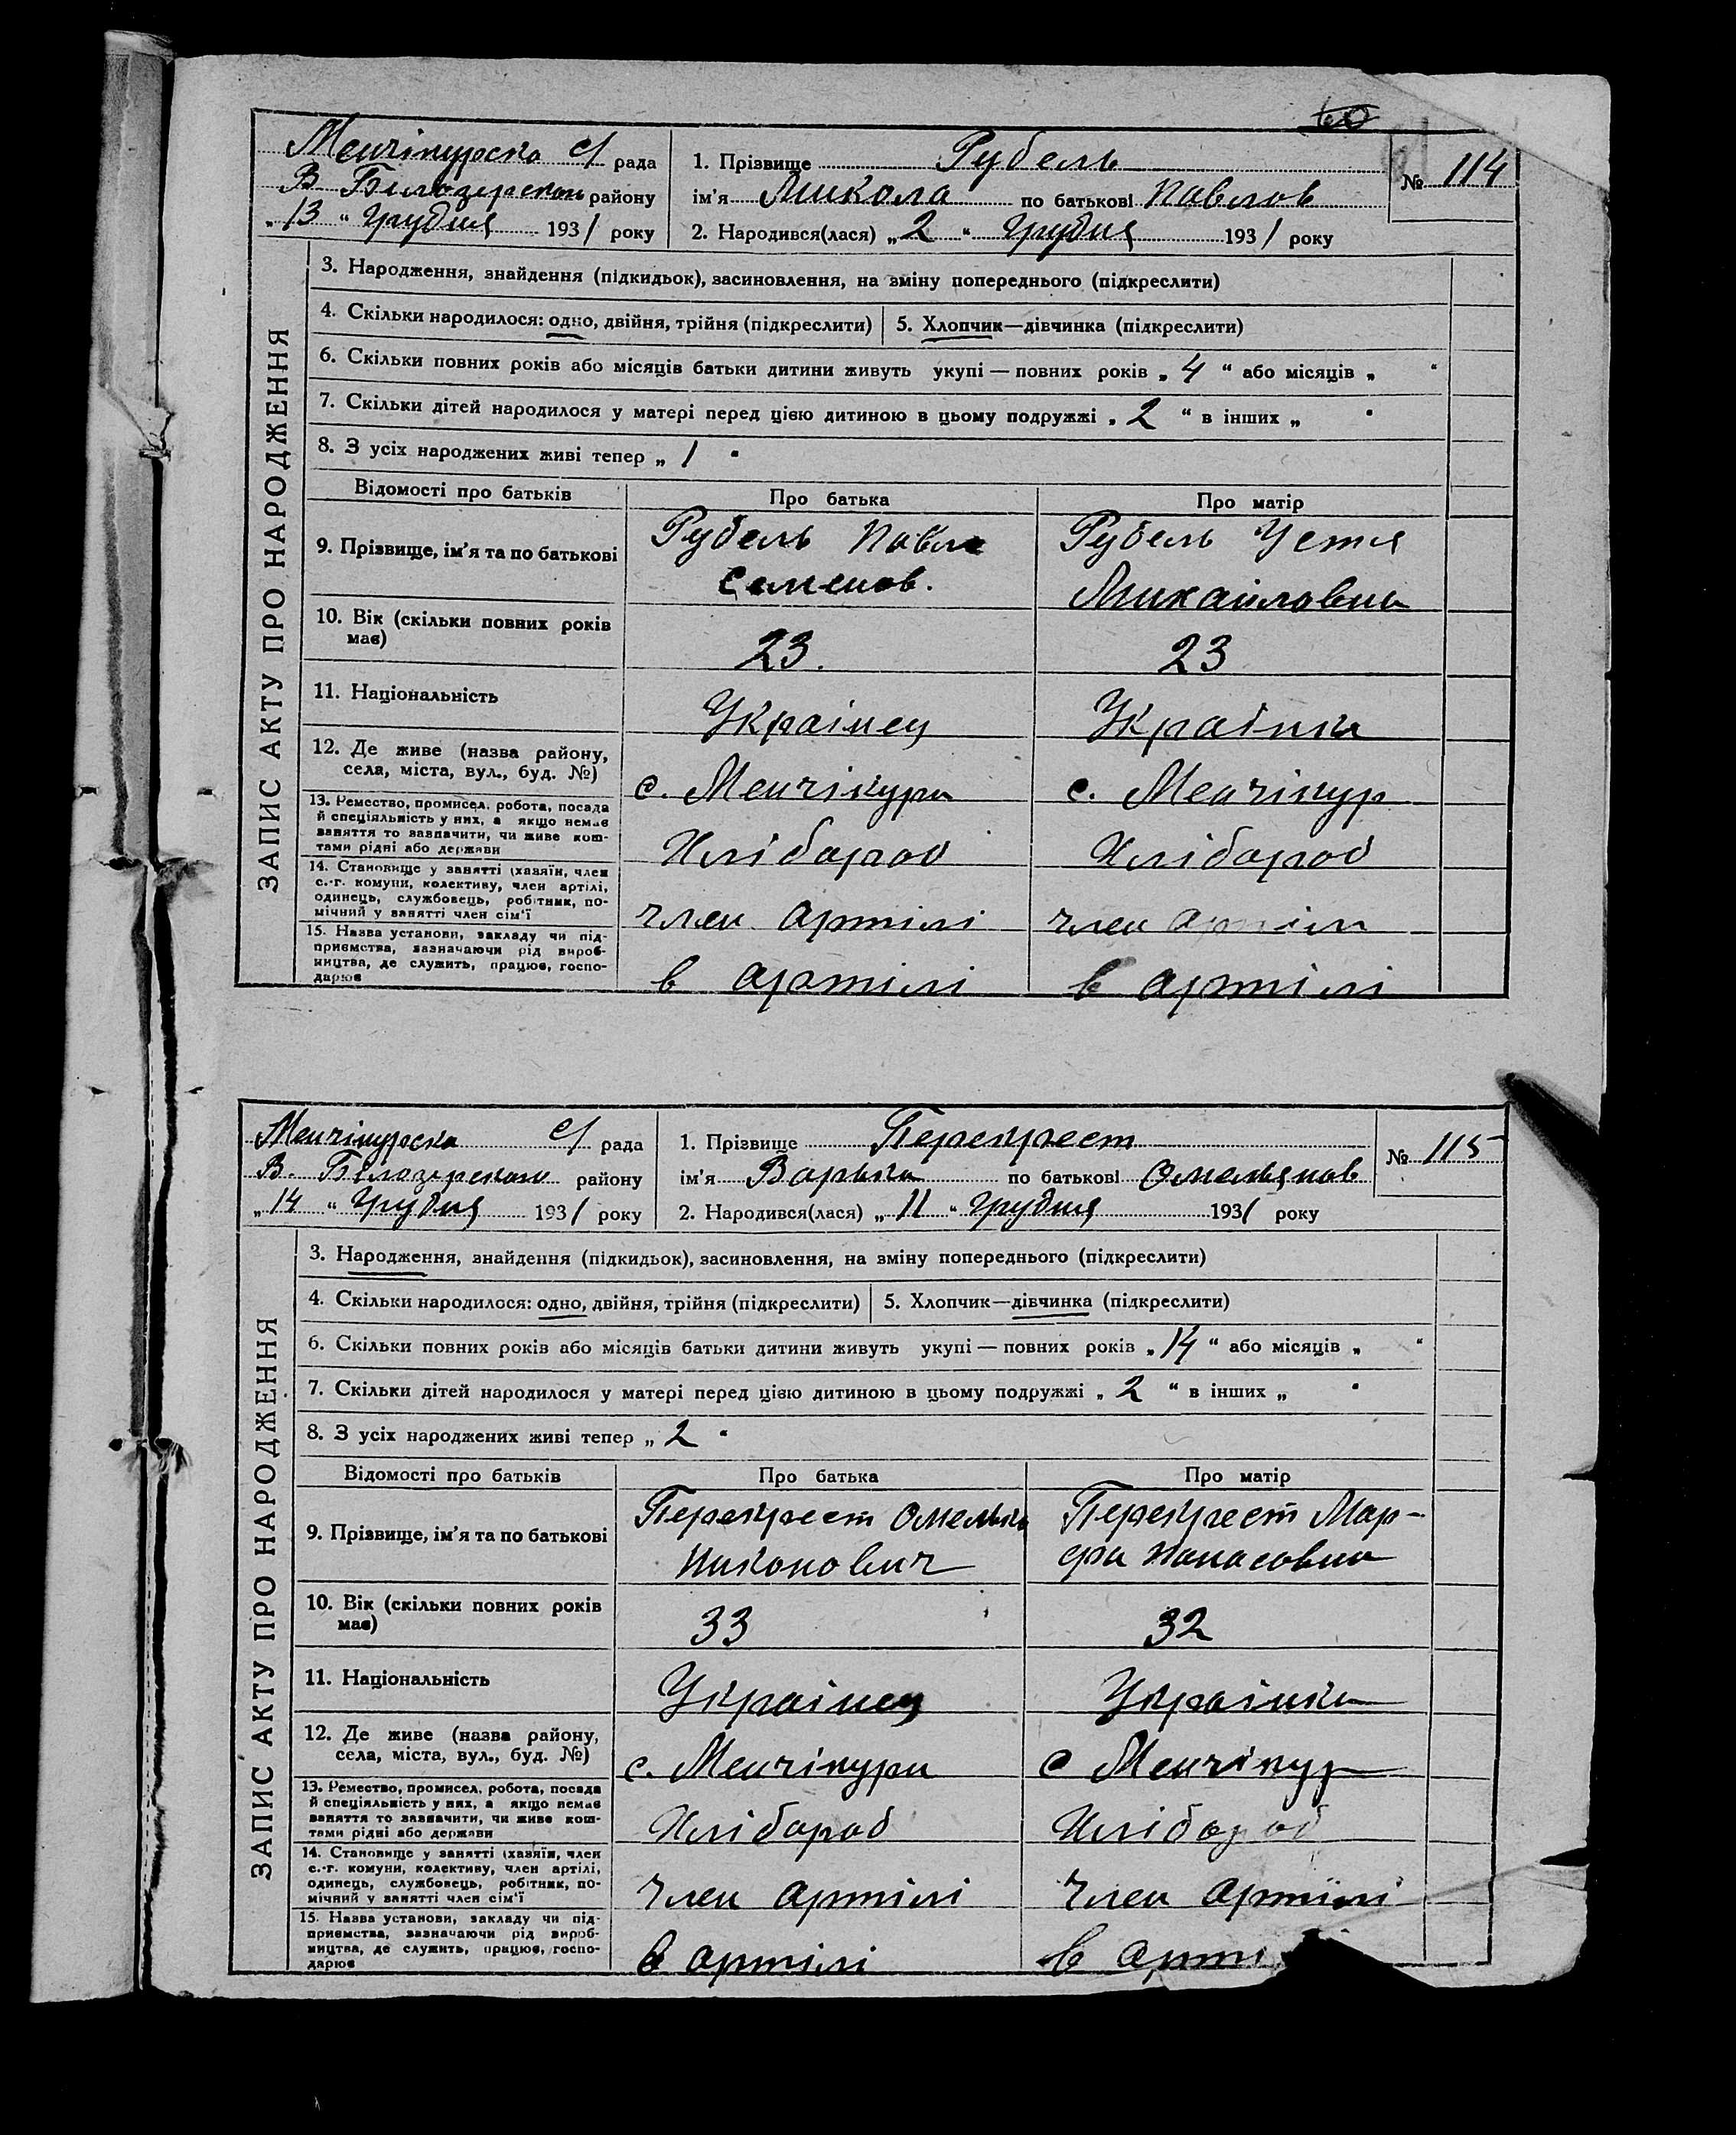 60
Менчікурська с/ рада
В Білозерськой району
„13“ Грудня 1931 року
1. Прізвище Рубель
ім'я Микола по батькові Павлов
2. Народився(лася) „2“ Грудня 1931 року
№ 114
ЗАПИС АКТУ ПРО НАРОДЖЕННЯ
3. Народження, знайдення (підкидьок), засиновлення, на зміну попереднього (підкреслити)
4. Скільки народилося: одно, двійня, трійня (підкреслити) 5. Хлопчик—дівчинка (підкреслити)
6. Скільки повних років або місяців батьки дитини живуть укупі — повних років „4“ або місяців „ “
7. Скільки дітей народилося у матері перед цією дитиною в цьому подружжі „2“ в інших „ “
8. З усіх народжених живі тепер „1“
Відомості про батьків Про батька Про матір
9. Прізвище, ім'я та по батькові
Рубель Павло
Семенов.
Рубель Устя
Михайловна
10. Вік (скільки повних років
має)
23. 23
11. Національність
Украінец Украінка
12. Де живе (назва району,
села, міста, вул., буд. №)
с. Менчікури с. Менчікур
13. Ремество, промисел, робота, посада
й спеціяльність у них, а якщо немає
заняття то зазначити, чи живе кош-
тами рідні або держави
Хлібороб Хлібороб
14. Становище у занятті (хазяїн, член
с.-г. комуни, колективу, член артілі,
одинець, службовець, робітник, по-
мічний у занятті член сім'ї
член артілі член артілі
15. Назва установи, закладу чи під-
приємства, зазначаючи рід вироб-
ництва, де служить, працює, госпо-
дарює
в артілі в артілі
Менчікурська с/ рада
В. Білозерською району
„14“ Грудня 1931 року
1. Прізвище Перекрест
ім'я Варька по батькові Омельянов
2. Народився(лася) „11“ Грудня 1931 року
№ 115
ЗАПИС АКТУ ПРО НАРОДЖЕННЯ
3. Народження, знайдення (підкидьок), засиновлення, на зміну попереднього (підкреслити)
4. Скільки народилося: одно, двійня, трійня (підкреслити) 5. Хлопчик—дівчинка (підкреслити)
6. Скільки повних років або місяців батьки дитини живуть укупі — повних років „14“ або місяців „ “
7. Скільки дітей народилося у матері перед цією дитиною в цьому подружжі „2“ в інших „ “
8. З усіх народжених живі тепер „2“
Відомості про батьків Про батька Про матір
9. Прізвище, ім'я та по батькові
Перекрест Омелько
Никонович
Перекрест Мар-
фа Панасовна
10. Вік (скільки повних років
має)
33 32
11. Національність
Украінец Украінка
12. Де живе (назва району,
села, міста, вул., буд. №)
с. Менчікури с Менчікур
13. Ремество, промисел, робота, посада
й спеціяльність у них, а якщо немає
заняття то зазначити, чи живе кош-
тами рідні або держави
Хлібороб Хлібороб
14. Становище у занятті (хазяїн, член
с.-г. комуни, колективу, член артілі,
одинець, службовець, робітник, по-
мічний у занятті член сім'ї
член артілі член артілі
15. Назва установи, закладу чи під-
приємства, зазначаючи рід вироб-
ництва, де служить, працює, госпо-
дарює
в артілі в арті